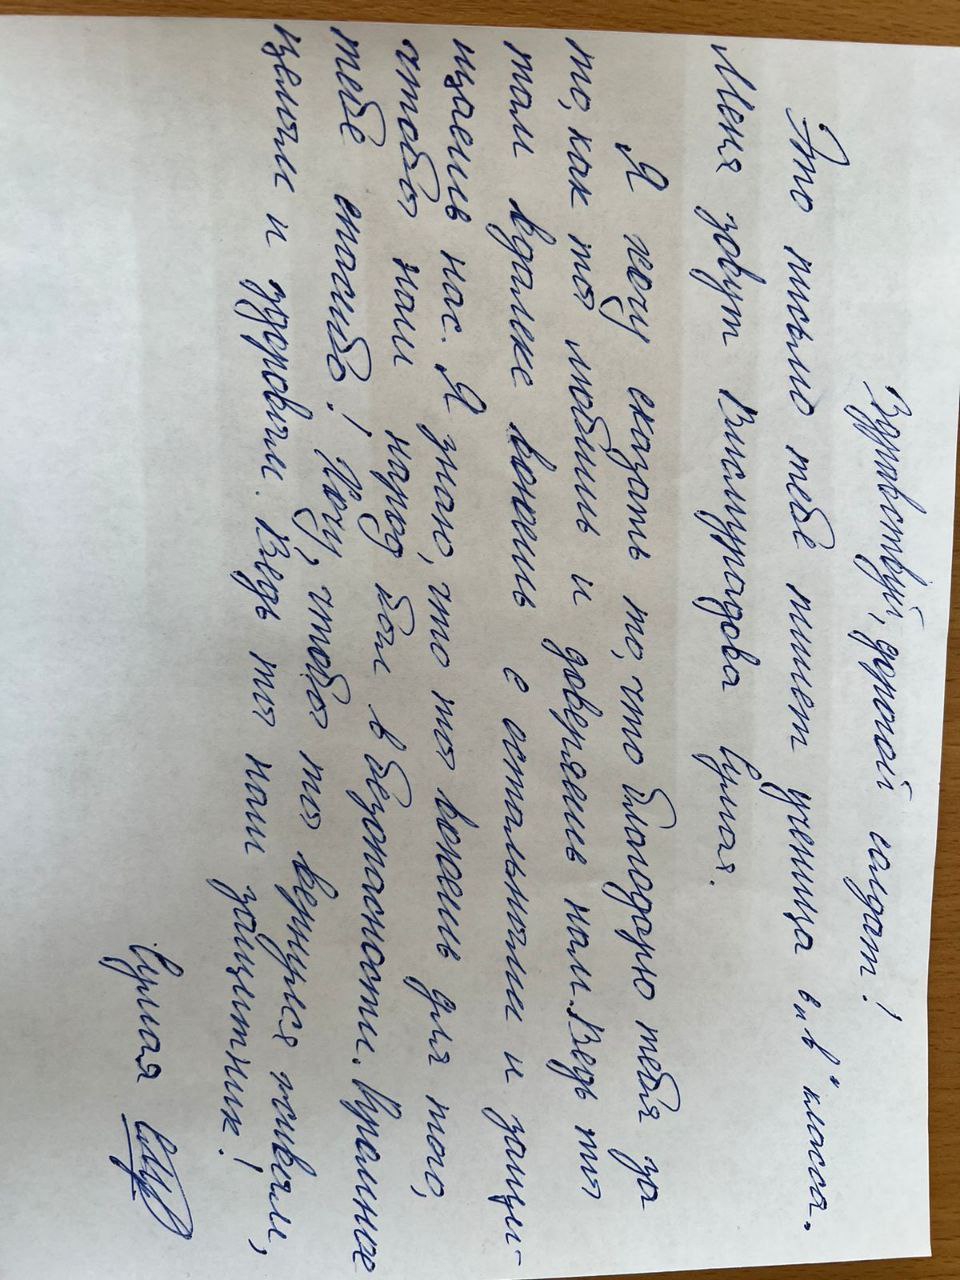 Здравствуй, дорогой солдат!
Это письмо тебе пишет ученица 8 „В" класса.
Меня зовут Висмурадова Сумая.
Я хочу сказать то, что благодарю тебя за
то, как ты любишь и доверяешь нам. Ведь ты
там вдалеке воюешь с остальными и защи-
щаешь нас. Я знаю, что ты воюешь для того,
чтобы наш народ был в безопасности. Огромное
тебе спасибо! Хочу, чтобы ты вернулся живым,
целым и здоровым. Ведь ты наш защитник!
Сумая